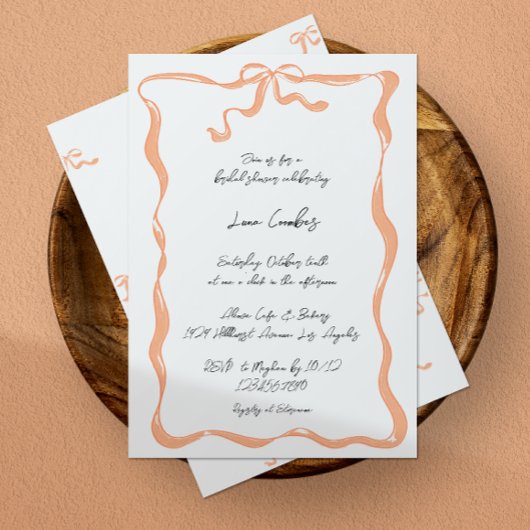 Join us for a
bridal shower celebrating
Luna Coombes
Saturday October tenth
at one o'clock in the afternoon
Alcove Cafe & Bakery
1929 Hillhurst Avenue, Los Angeles
RSVP to Meghan by 10/12
1234567890
Registry at